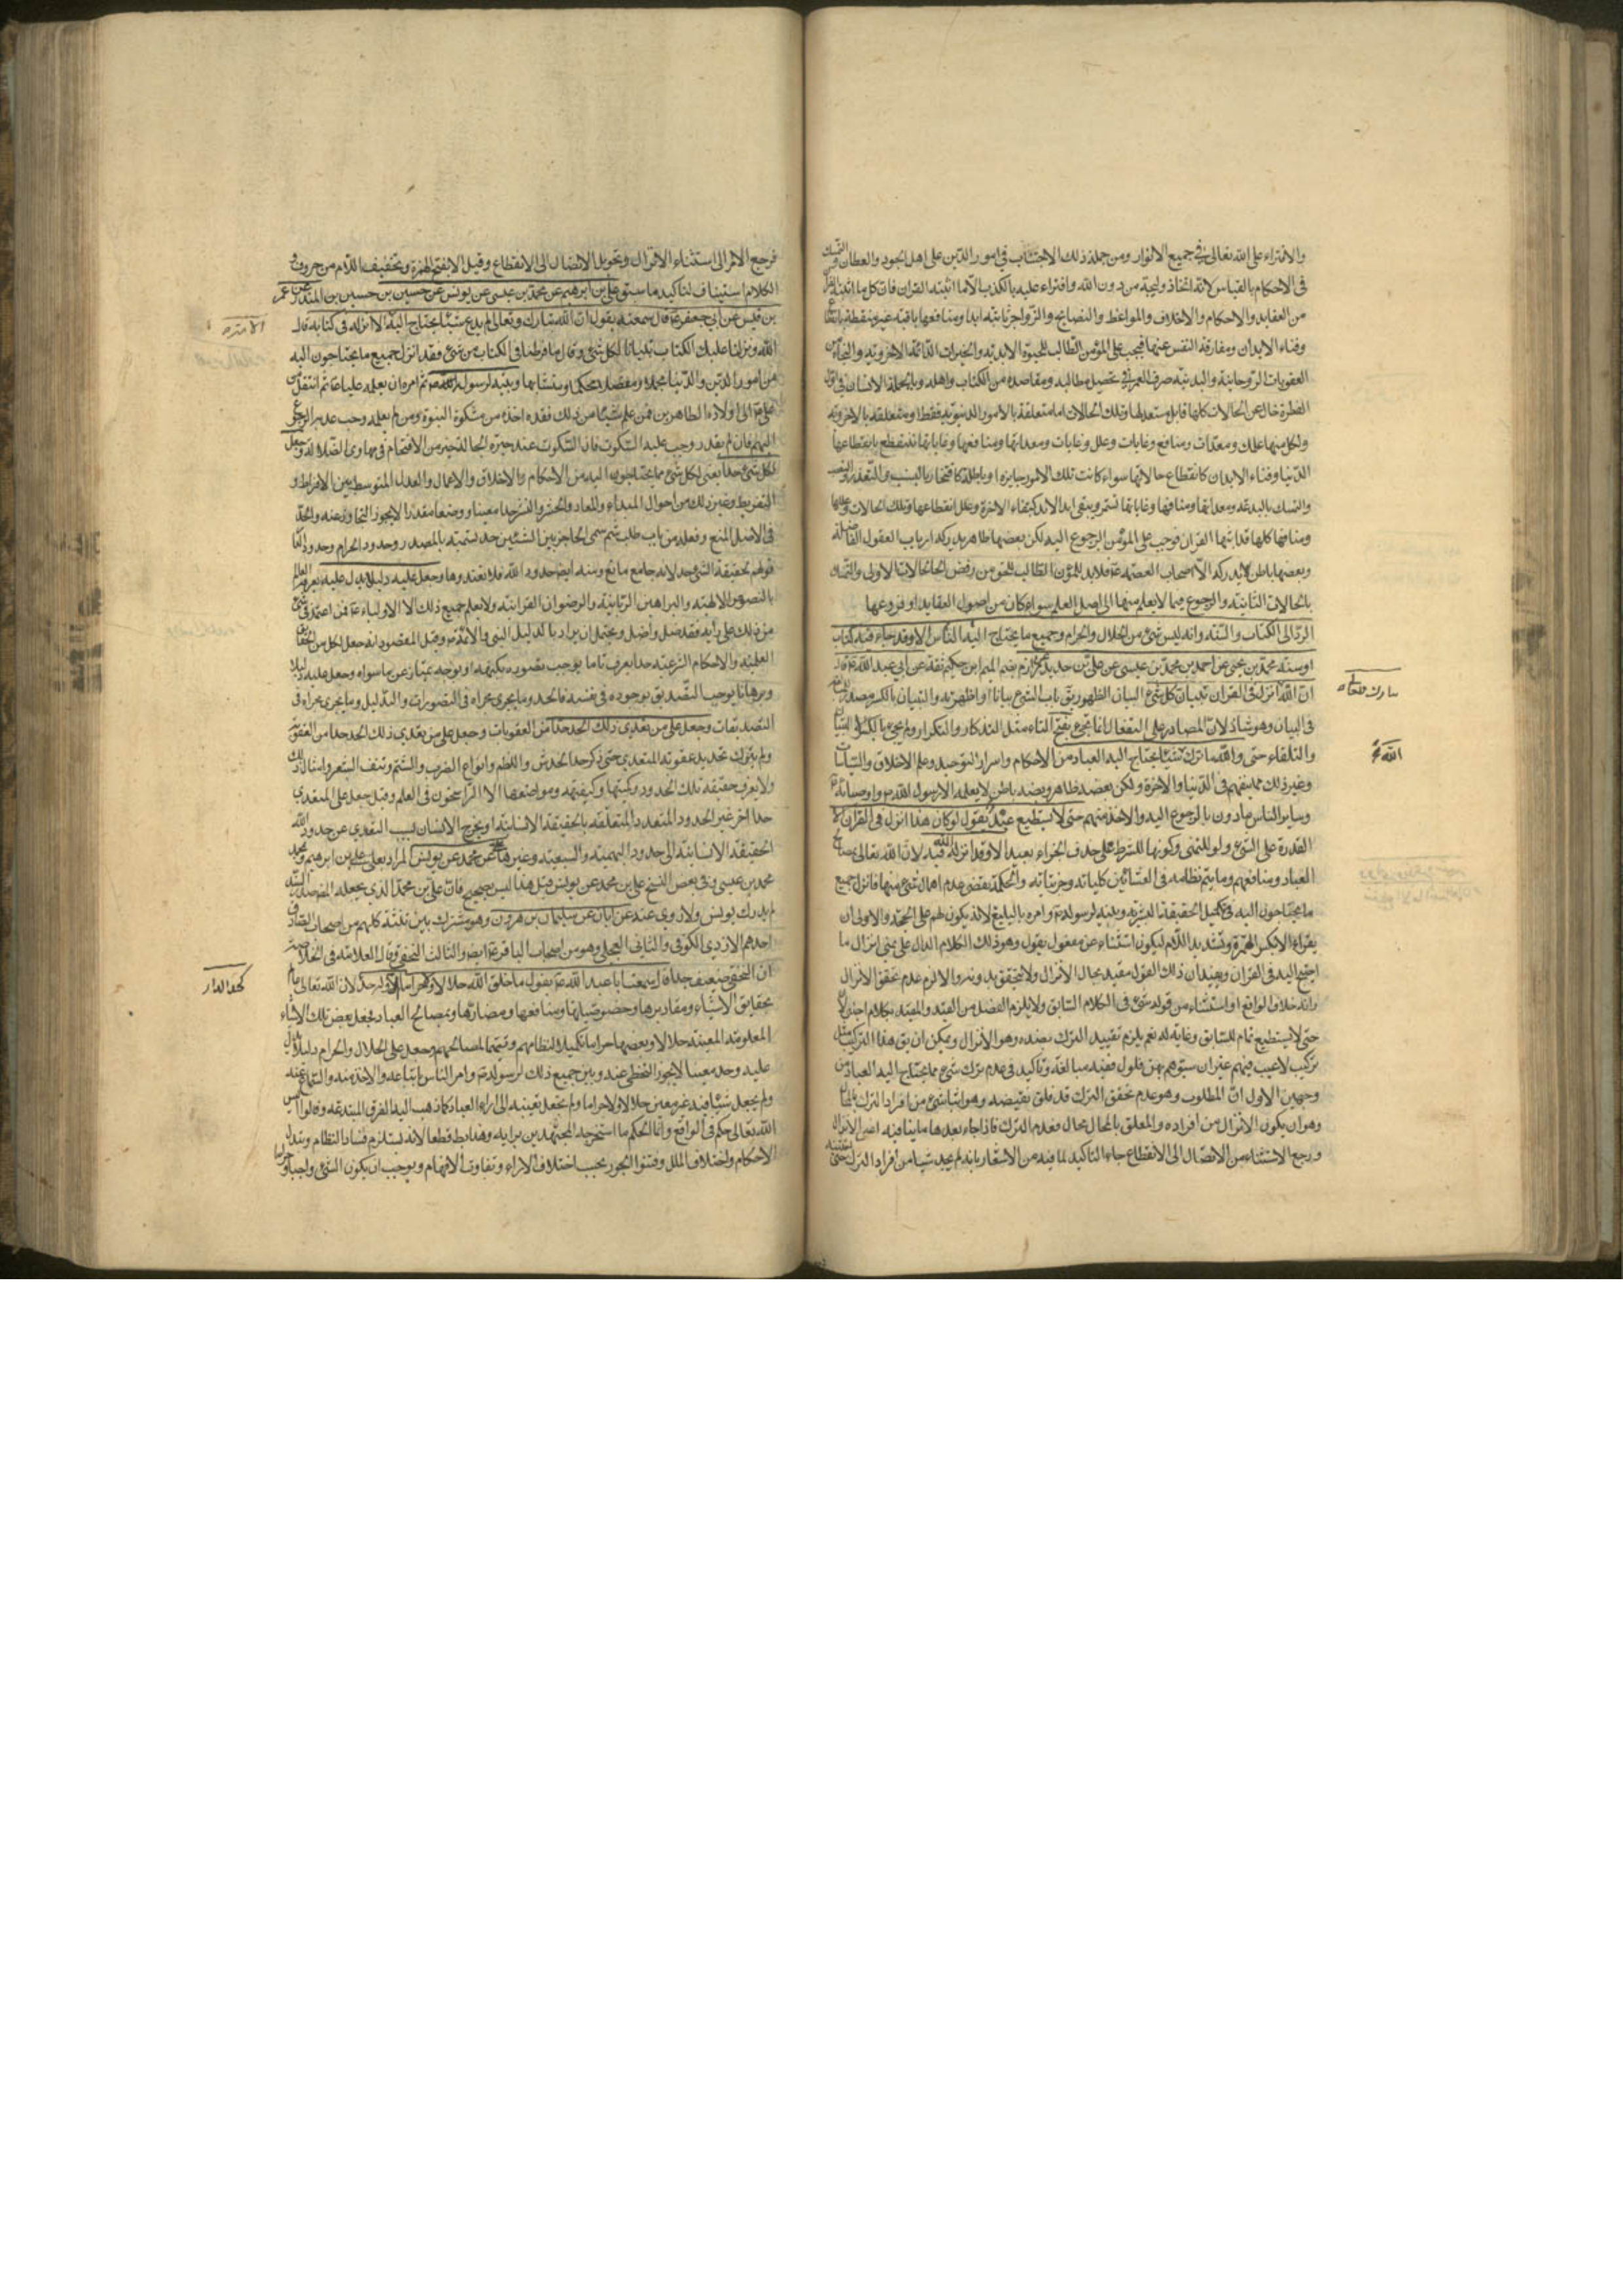 والافتراء على الله تعالى في جميع الاطوار ومن جملة ذلك الاجتناب في امور الدين على اهل الجود والعطان التمسك
في الاحكام بالقياس لانه اتخاذ وليجة من دون الله وافتراء عليه بالكذب لا ما اثبته القران فان كل ما اثبته
من العقايد والاحكام والاخلاق والمواعظ والنصايح والزواجر ثابتة ابدا ومنافعها باقية غير منقطعة
وفناء الابدان ومفارقة النفس عنها فيجب على المؤمن الطالب للحيوة الابدية والخيرات الدائمة الاخروية والنجاة من
العقوبات الروحانية والبدنية صرف العمر في تحصيل مطالبه ومقاصده من الكتاب واهله وبالجملة الانسان في اول
الفطرة خال عن الحالات كلها قابل مستعد لها وتلك الحالات اما متعلقة بالامور الدنيوية فقط او متعلقة بالاخروية
ولكل منها علل ومعدات ومنافع وغايات وعلل وغايات ومعداتها ومنافعها وغاياتها تنقطع بانقطاع
الدنيا وفناء الابدان كانقطاع حالاتها سواء كانت تلك الامور جايزة او باطلة
والتمسك بالبدعة ومعداتها ومنافعها وغاياتها تستمر وتبقى ابد الابد كبقاء الاخرة وعلل انقطاعها وتلك الحالات وعللها
ومنافعها كلها قد اثبتها القران فوجب على المؤمن الرجوع اليه لكن بعضها ظاهر يدركه ارباب العقول الفاضلة
وبعضها باطن لا يدركه الا اصحاب العصمة ع فلا بد للمؤمن الطالب للحق من رفض الحالات الاولى والتمسك
بالحالات الثانية والرجوع فيما لا يعلم منها الى اصل العلم سواء كان من اصول العقايد او فروعها
الرد الى الكتاب والسنة وانه ليس شئ من الحلال والحرام وجميع ما يحتاج اليه الناس الا وقد جاء فيه كتاب
او سنة محمد بن يحيى عن احمد بن محمد بن عيسى عن علي بن حديد عن مرازم بضم الميم ابن حكيم ثقة عن ابي عبد الله ع قال
ان الله انزل في القران تبيان كل شئ البيان الظهور يق بان الشئ بيانا او اظهرته والتبيان بالكسر مصدر
في البيان وهو شاذ لان المصادر على التفعال انما تجئ بفتح التاء مثل التذكار والتكرار ولم يجئ بالكسر الا التبيان
والتلقاء حتى والله ما ترك شيئا يحتاج اليه العباد من الاحكام واسرار التوحيد وعلم الاخلاق والسياسات
وغير ذلك مما ينفعهم في الدنيا والاخرة ولكن بعضه ظاهر وبعضه باطن لا يعلمه الا رسول الله ص واوصيائه ع
وساير الناس مامورون بالرجوع اليه والاخذ منهم حتى لا يستطيع عبد يقول لو كان هذا انزل في القران
القدرة على الشئ ولو للتمنى وكونها للشرط على حذف الجزاء بعيد الا وقد انزله الله فيه لان الله تعالى
العباد ومنافعهم وما يتم نظامه في النشاتين كلياته وجزئياته والحكمة تقتضي عدم اهمال شئ منها فانزل جميع
ما يحتاجون اليه في تكميل الحقيقة البشرية وبينه لرسوله ص وامره بالتبليغ لانه يكون لهم على الحجة والاولى ان
يقراء الا بكسر الهمزة وتشديد اللام ليكون استثناء عن مفعول يقول وهو ذلك الكلام الدال على تمنى انزال ما
احتيج اليه في القران ويفيد ان ذلك القول مقيد بحال الانزال ولا يتحقق بدونه والا لزم عدم تحقق الانزال
وانه خلاف الواقع او استثناء من قوله شئ في الكلام السابق ولا يلزم الفصل بين القيد والمقيد بكلام اجنبي لان
حتى لا يستطيع تمام للسابق وغاية له نعم يلزم تقييد الترك بضده وهو الانزال ويمكن ان يق هذا التركيب مثل
تركيب لا عيب فيهم غير ان سيوفهم بهن فلول ففيه مبالغة وتاكيد في عدم ترك شئ مما يحتاج اليه العباد من
وجهين الاول ان المطلوب وهو عدم تحقق الترك قد علق بنقيضه وهو اثبات شئ من افراد الترك بالمحال
وهو ان يكون الانزال من افراده والمعلق بالمحال محال فعدم الترك فاذا جاء بعدها ما ينافيه اعنى الانزال
ورجع الاستثناء من الاتصال الى الانقطاع جاء التاكيد لما فيه من الاشعار بانه لم يجد شيئا من افراد الترك حتى يستثنيه
تبارك وتعالى
الله
فرجع الامر الى استثناء الانزال وتحويل الاتصال الى الانقطاع وقيل الا بفتح الهمزة وتخفيف اللام من حروف
الكلام استيناف لتاكيد ما سبق علي بن ابرهيم عن محمد بن عيسى عن يونس عن حسين بن المنذر عن عمر
بن قيس عن ابي جعفر ع قال سمعته يقول ان الله تبارك وتعالى لم يدع شيئا يحتاج اليه الا انزله في كتابه قال
الله ونزلنا عليك الكتاب تبيانا لكل شئ وقال ما فرطنا في الكتاب من شئ فقد انزل جميع ما يحتاجون اليه
من امور الدين والدنيا مجملا ومفصلا محكما ومتشابها وبينه لرسوله ص ثم امره ان يعلمه عليا ع ثم انتقل من
علي ع الى اولاده الطاهرين فمن علم شيئا من ذلك فقد اخذه من مشكوة النبوة ومن لم يعلمه وجب عليه الرجوع
اليهم فان لم يقدر وجب عليه السكوت فان السكوت عند حيرة الجهالة خير من الاقتحام في مهاوى الضلالة وجعل
لكل شئ حدا يعنى لكل شئ مما يحتاجون اليه من الاحكام والاخلاق والاعمال والعدل المتوسط بين الافراط و
التفريط وغير ذلك من احوال المبداء والمعاد والحشر والنشر حدا معينا ووضعا مقدرا لا يجوز التجاوز عنه والحد
في الاصل المنع وفعله من باب طلب ثم سمى الحاجز بين الشيئين حد تسمية بالمصدر وحدود الحرام وحدود الدار
قولهم لحقيقة الشئ حد لانه جامع مانع ومنه ايضا حدود الله فلا تعتدوها وجعل عليه دليلا يدل عليه
بالنصوص الالهية والبراهين الربانية والرضوان القرانية ولا يعلم جميع ذلك الا الاولياء ع فمن اعتمد في شئ
من ذلك على رأيه فقد ضل واضل ويحتمل ان يراد بالدليل النبي والائمة ع وقيل المقصود انه جعل لكل من الحقايق
العلمية والاحكام الشرعية حدا يعرف تاما يوجب تصوره بكنهه او بوجه يمتاز عن ما سواه وجعل عليه دليلا
وبرهانا يوجب التصديق بوجوده في نفسه فالحد وما يجرى مجراه في التصورات والدليل وما يجرى مجراه في
التصديقات وجعل على من تعدى ذلك الحد حدا من العقوبات وجعل على من تعدى ذلك الحد حدا من العقوبة
ولم يترك تحديد عقوبة المتعدى حتى ذكر حد الخدش واللطم وانواع الضرب والشتم ونتف الشعر وامثال ذلك
ولا يعرف حقيقة تلك الحدود وكميتها وكيفيتها ومواضعها الا الراسخون في العلم وقيل جعل على المتعدى
حدا اخر غير الحدود المتعددة المتعلقة بالحقيقة الانسانية او يخرج الانسان بسبب التعدى عن حدود الله
الحقيقة الانسانية الى حدود البهيمية والسبعية وغيرها عن محمد عن يونس المراد بعلى علي بن ابرهيم وبمحمد
محمد بن عيسى وفي بعض النسخ علي بن محمد عن يونس قيل هذا ليس بصحيح فان علي بن محمد الذي يجعله المصنف
لم يدرك يونس ولا روى عنه عن ابان عن سليمان بن هرون وهو مشترك بين ثلثة كلهم من اصحاب الصادق
احدهم الازدى الكوفي والثاني العجلي وهو من اصحاب الباقر ع ايضا والثالث النخعي وقال العلامة في الخلاصة
ان النخعي ضعيف جدا قال سمعت ابا عبد الله ع يقول ما خلق الله حلالا ولا حراما الا وله حد لان الله تعالى عالم
بحقايق الاشياء ومقاديرها وخصوصياتها ومنافعها ومضارها وبمصالح العباد فجعل بعض تلك الاشياء
المعلومة المعينة حلالا وبعضها حراما تكميلا لنظامهم وتتميما لمصالحهم وجعل على الحلال والحرام دليلا يدل
عليه وحد معينا لا يجوز التخطى عنه وبين جميع ذلك لرسوله ص وامر الناس باتباعه والاخذ منه والسماع عنه
ولم يجعل شيئا فيه غير معين حلالا ولا حراما ولم يجعل تعيينه الى اراء العباد كما ذهب اليه الفرق المبتدعة وقالوا ليس
الله تعالى حكم في الواقع وانما الحكم ما استخرجه المجتهدين برايه وهذا باطل قطعا لانه يستلزم فساد النظام وتبدل
الاحكام واختلاف الملل وفشو الجور بحسب اختلاف الاراء وتفاوت الافهام ويوجب ان يكون الشئ واجبا وحراما
الامة
كحد الدار